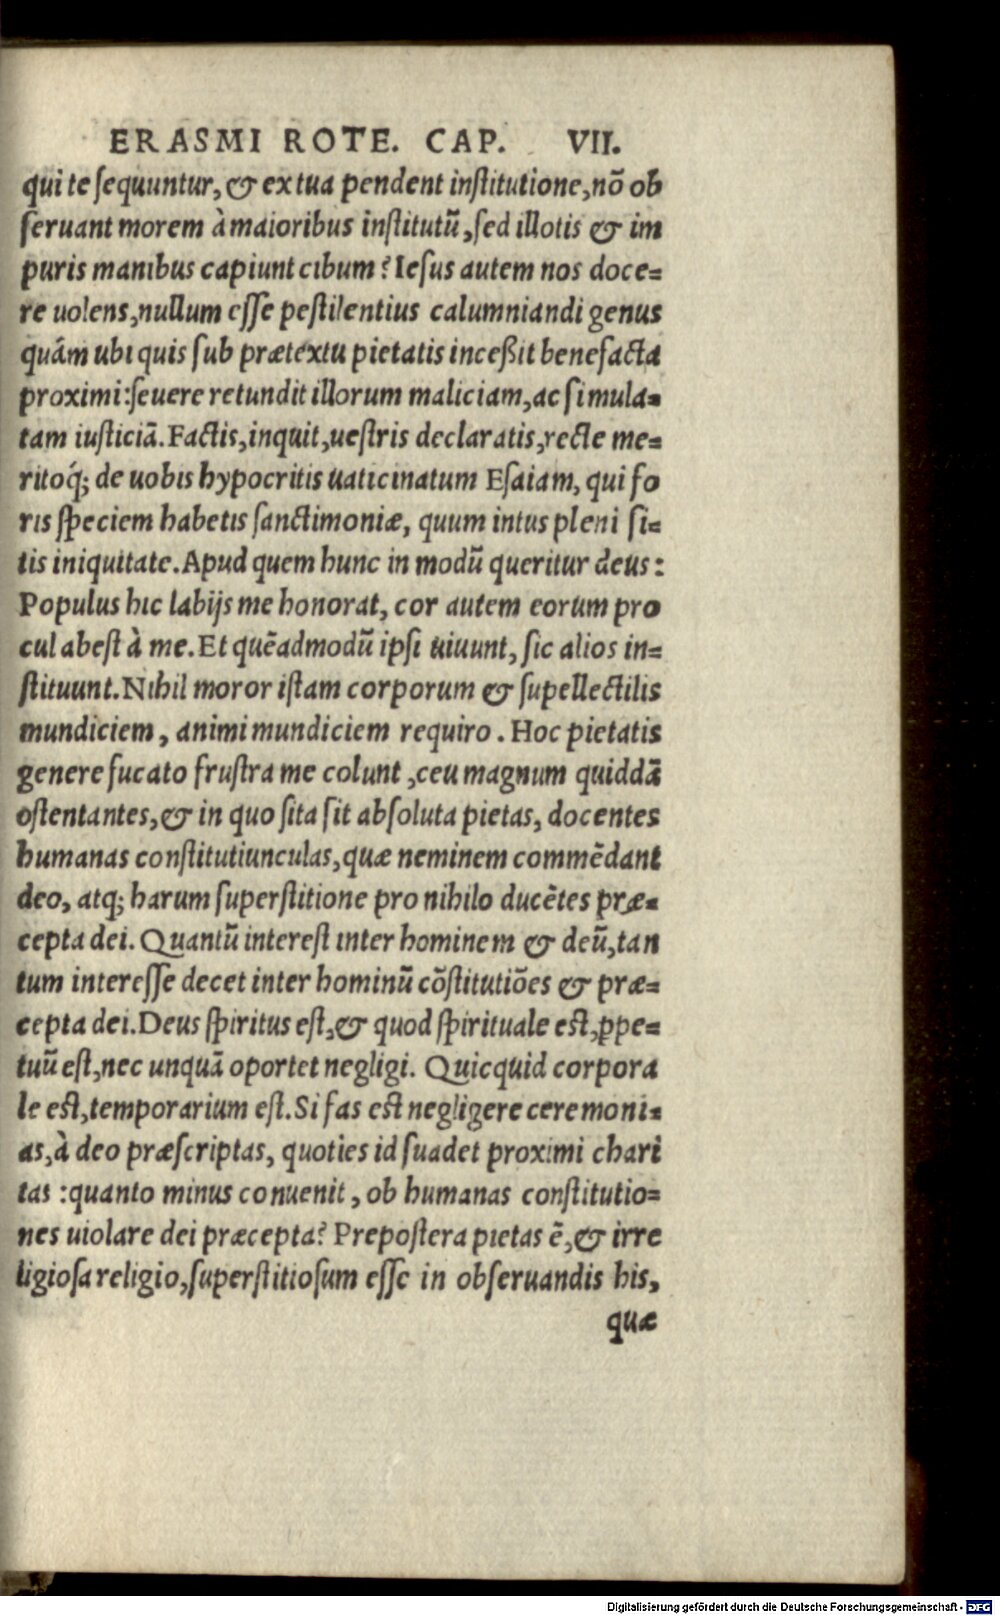 ERASMI ROTE. CAP. VII.
qui te sequuntur, & ex tua pendent institutione, nõ ob
seruant morem à maioribus institutũ, sed illotis & im
puris manibus capiunt cibum? Iesus autem nos doce=
re uolens, nullum esse pestilentius calumniandi genus
quám ubi quis sub prætextu pietatis inceßit benefacta
proximi: seuere retundit illorum maliciam, ac simula=
tam iusticiã. Factis, inquit, uestris declaratis, recte me=
ritoq́; de uobis hypocritis uaticinatum Esaiam, qui fo
ris speciem habetis sanctimoniæ, quum intus pleni si=
tis iniquitate. Apud quem hunc in modũ queritur deus:
Populus hic labijs me honorat, cor autem eorum pro
cul abest à me. Et quẽadmodũ ipsi uiuunt, sic alios in=
stituunt. Nihil moror istam corporum & supellectilis
mundiciem, animi mundiciem requiro. Hoc pietatis
genere fucato frustra me colunt, ceu magnum quiddã
ostentantes, & in quo sita sit absoluta pietas, docentes
humanas constitutiunculas, quæ neminem commẽdant
deo, atq; harum superstitione pro nihilo ducẽtes præ=
cepta dei. Quantũ interest inter hominem & deũ, tan
tum interesse decet inter hominũ cõstitutiões & præ=
cepta dei. Deus spiritus est, & quod spirituale est, ꝑpe=
tuũ est, nec unquã oportet negligi. Quicquid corpora
le est, temporarium est. Si fas est negligere ceremoni=
as, à deo præscriptas, quoties id suadet proximi chari
tas: quanto minus conuenit, ob humanas constitutio=
nes uiolare dei præcepta? Prepostera pietas ẽ, & irre
ligiosa religio, superstitiosum esse in obseruandis his,
quæ
Digitalisierung gefördert durch die Deutsche Forschungsgemeinschaft - DFG